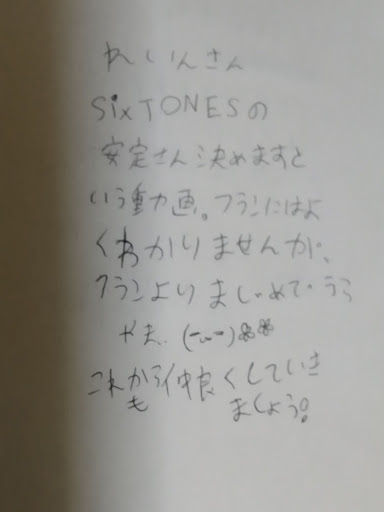 れいんさん
SixTONESの
安定さん決めますと
いう動画。フランにはよ
くわかりませんが、
フランより まじめで
(-ᴗ-)❀❀
これからも仲良くしていき
ましょう!